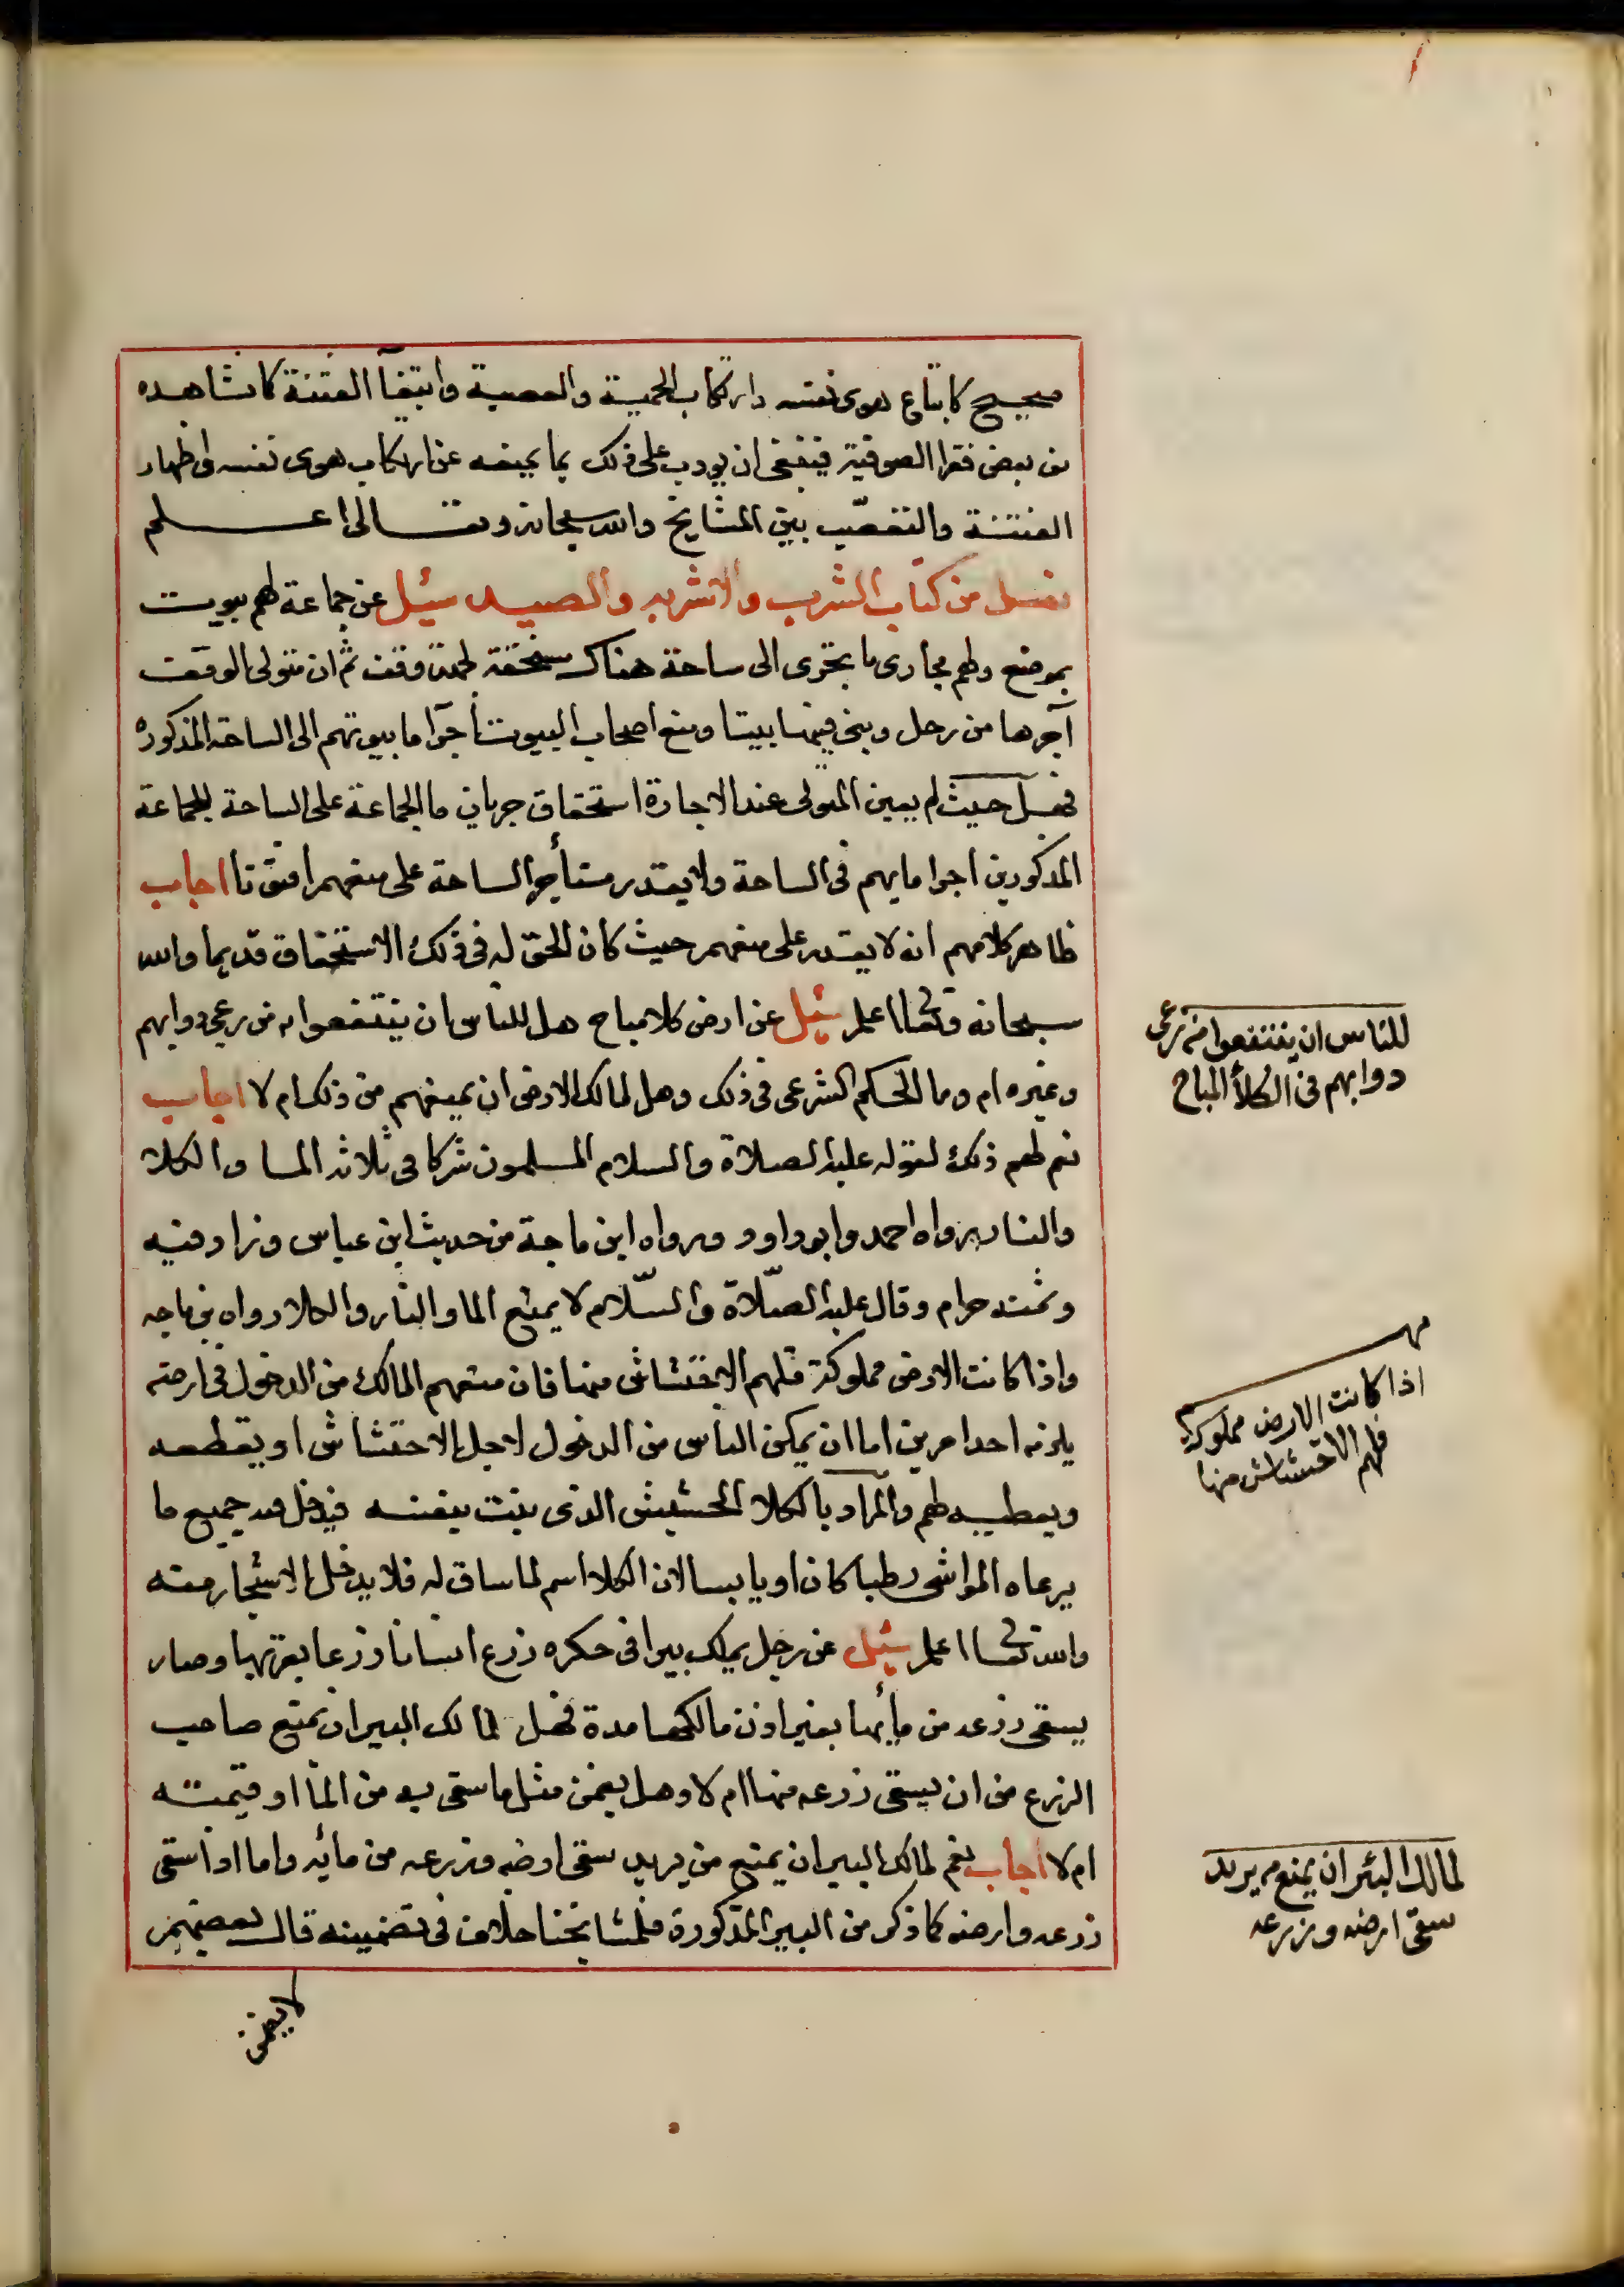 صحيح كاتباع هوى نفسه وارتكاب الحمية والعصبية وابتغآ الفتنة كما نشاهده
من بعض فقرا الصوفية فينبغى ان يودب على ذلك بما يمنعه عن ارتكاب هوى نفسه فى اظهار
الفتنة والتعصّب بين المشايخ والله سبحانه وتعالى اعلم
فصل من كتاب الشرب والاشربه والصيد سئل عن جماعة لهم بيوت
بموضع ولهم مجارى ما تجرى الى ساحة هناك مستحقة لجهة وقف ثم ان متولى الوقف
آجرها من رجل وبنى فيها بيتا ومنع اصحاب البيوت اجرآ ما بيوتهم الى الساحة المذكوره
فهل حيث لم يعين المتولى عند الاجارة استحقاق جريان ما الجماعة على الساحة للجماعة
المذكورين اجرا مايهم فى الساحة ولا يقدر مستأجر الساحة على منعهم افتونا اجاب
ظاهر كلامهم انه لا يقدر على منعهم حيث كان الحق له فى ذلك الاستحقاق قديما والله
سبحانه وتعالى اعلم سئل عن ارض كلا مباح هل للناس ان ينتفعوا به من رعى دوابهم
وغيره ام وما الحكم الشرعى فى ذلك وهل لمالك الارض ان يمنعهم من ذلك ام لا اجاب
نعم لهم ذلك لقوله عليه الصلاة والسلام المسلمون شركا فى ثلاثه الما والكلا
والنار رواه احمد وابو داود ورواه ابن ماجة من حديث ابن عباس وزاد فيه
وثمنه حرام وقال عليه الصّلاة والسّلام لا يمنع الما والنار والكلا رواه بن ماجه
واذا كانت الارض مملوكة فلهم الاحتشاش منها فان منعهم المالك من الدخول فى ارضه
يلزمه احد امرين اما ان يمكن الناس من الدخول لاجل الاحتشاش او يقطعه
ويعطيه لهم والمراد بالكلا الحشيش الذى ينبت بنفسه فيدخل فيه جميع ما
يرعاه المواشى رطبا كان او يابسا لان الكلا اسم لما ساق له فلا يدخل الاشجار منه
والله تعالى اعلم سئل عن رجل يملك بيرا فى حكره زرع انسانا زرعا بقربها وصار
يسقى زرعه من مائها بغير اذن مالكها مدة فهل لمالك البير ان يمنع صاحب
الزرع من ان يسقى زرعه منها ام لا وهل يضمن مثل ما سقى به من المآ او قيمته
ام لا اجاب نعم لمالك البير ان يمنع من يريد سقى ارضه وزرعه من مائه واما اذا سقى
زرعه وارضه كما ذكر من البير المذكورة فلمشايخنا خلاف فى تضمينه قال بعضهم
لا يضمن
للناس ان ينتفعوا من رعى
دوابهم فى الكلأ المباح
مهم
اذا كانت الارض مملوكة
فلهم الاحتشاش منها
لمالك البئر ان يمنع من يريد
سقى ارضه وزرعه